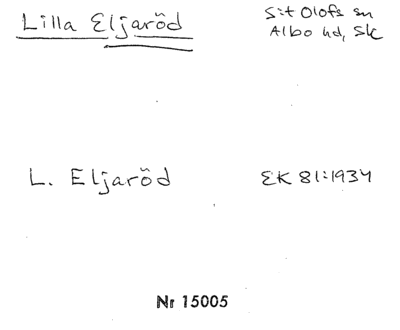 Lilla Eljaröd
S:t Olofs sn
Albo hd, Sk
L. Eljaröd
EK 81:1934
Nr 15005